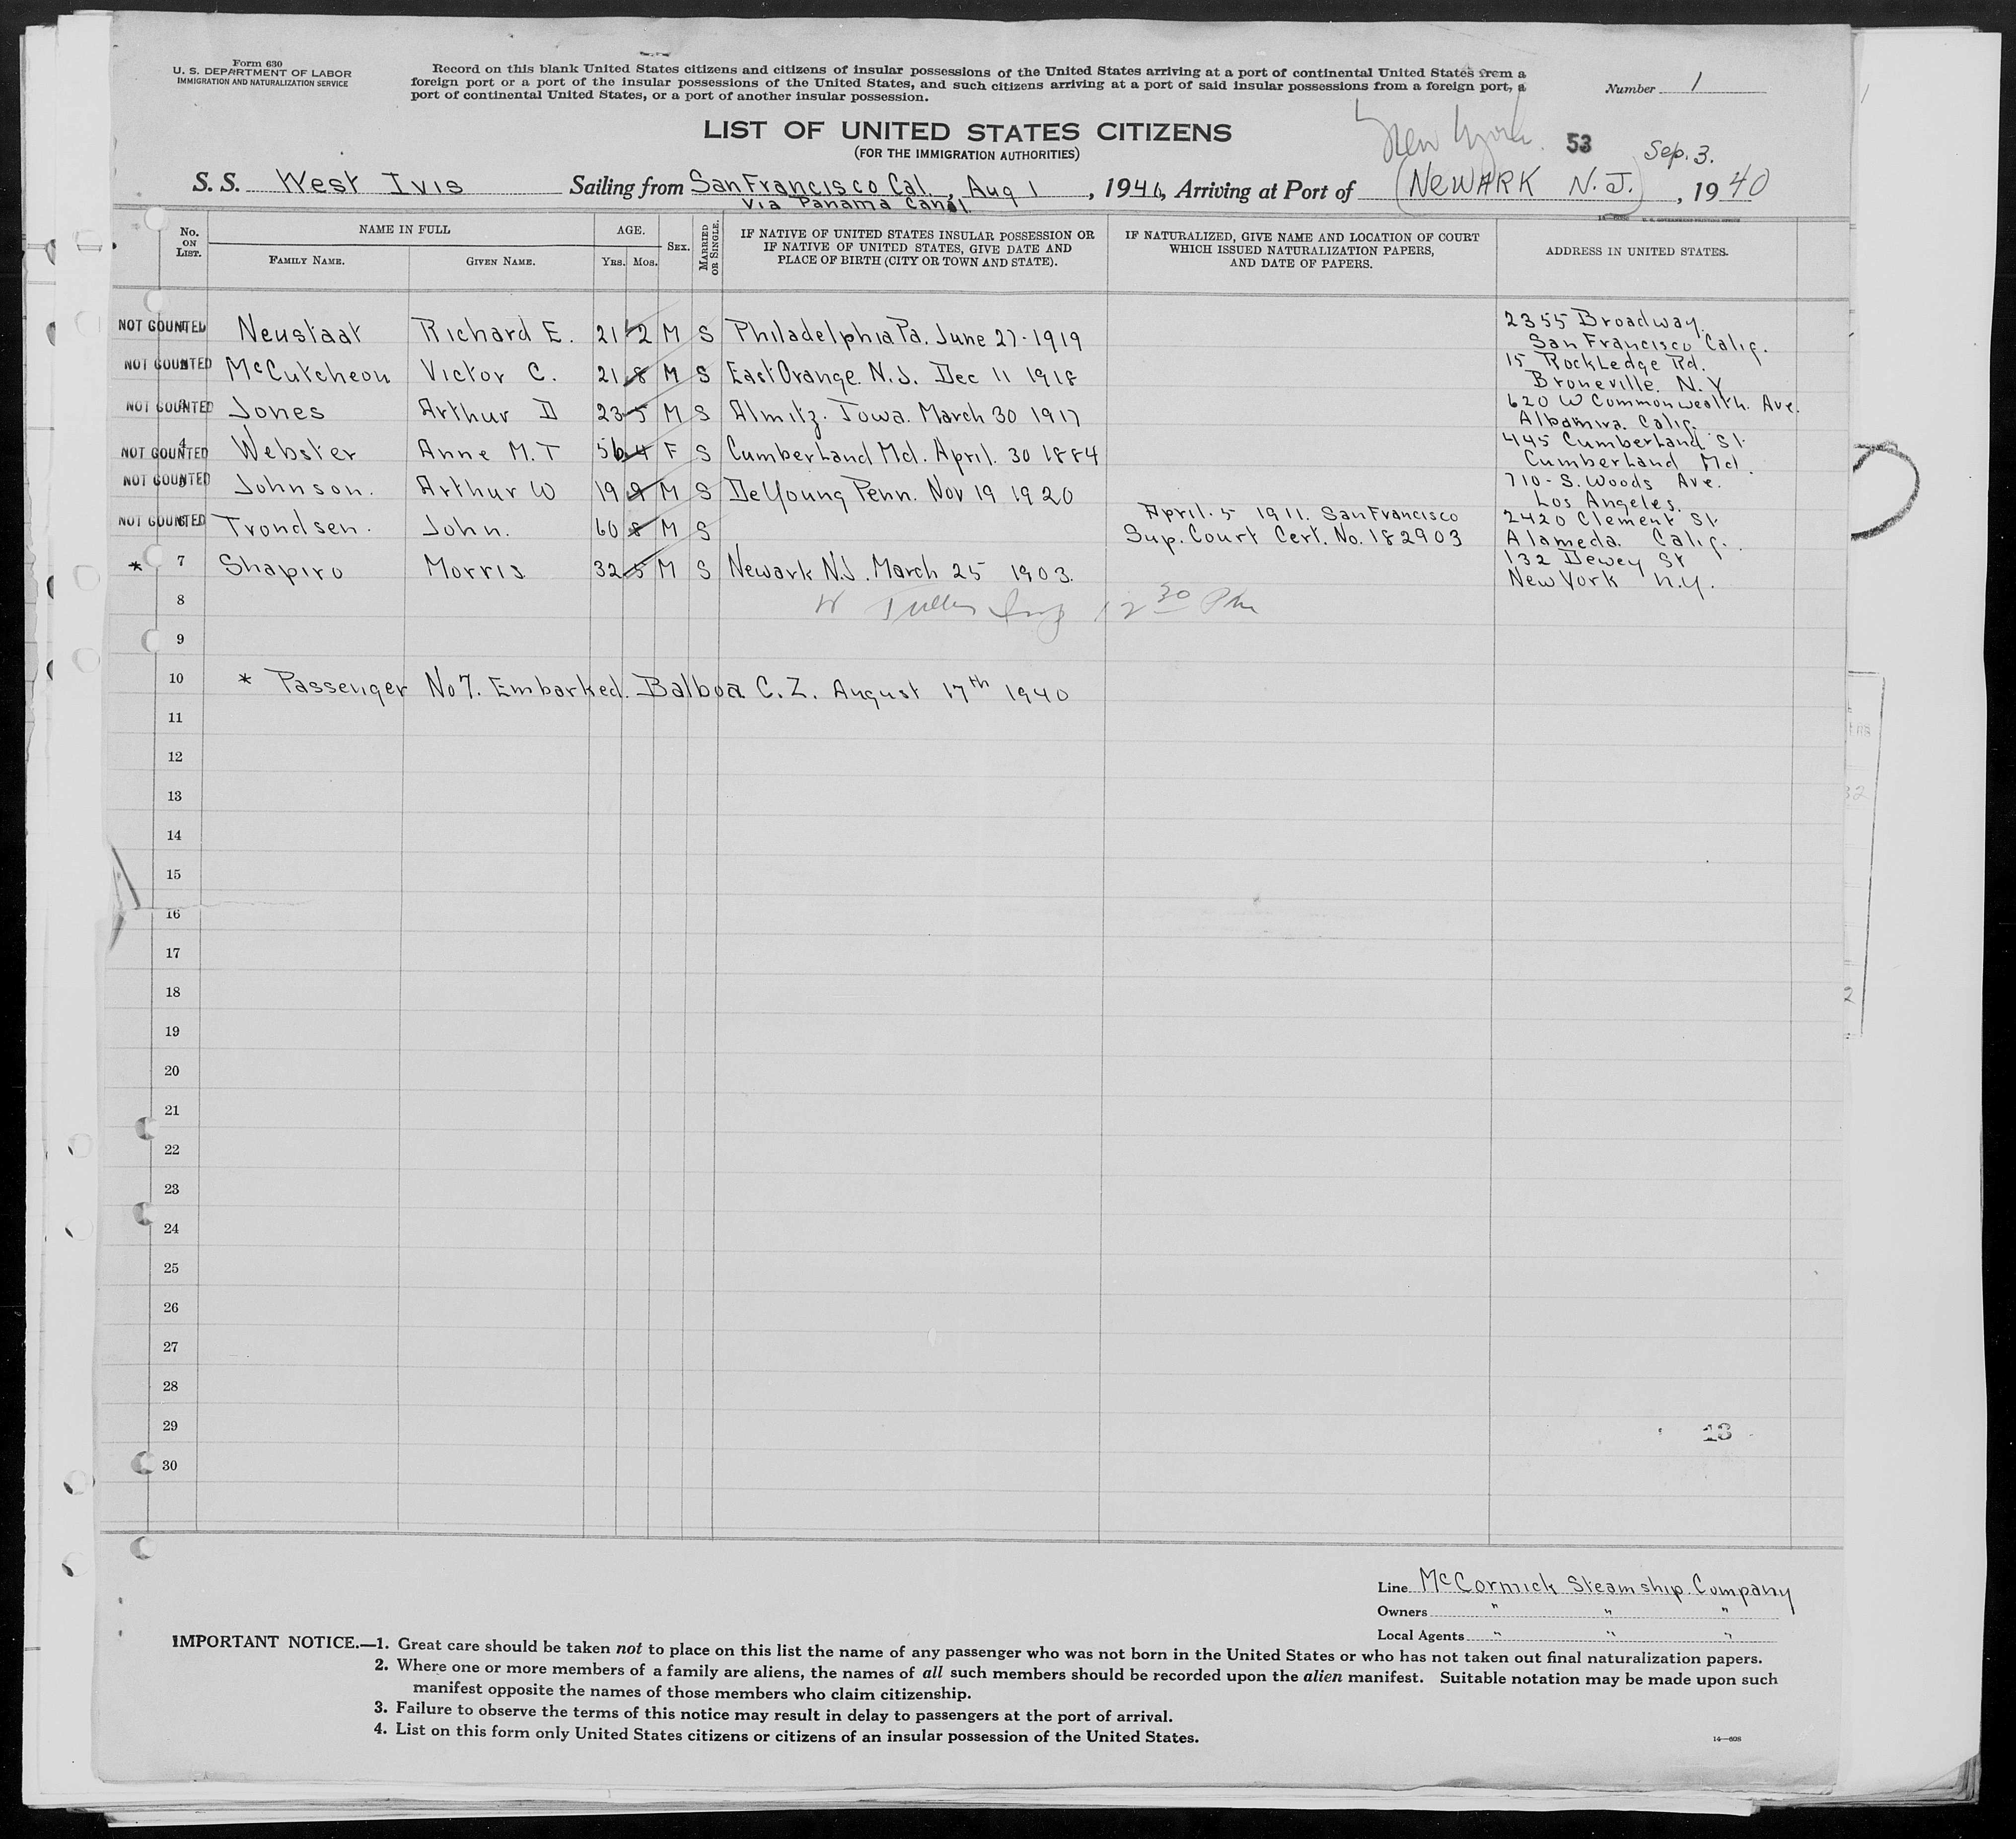 Form 630
U. S. DEPARTMENT OF LABOR
IMMIGRATION AND NATURALIZATION SERVICE
Record on this blank United States citizens and citizens of insular possessions of the United States arriving at a port of continental United States from a
foreign port or a port of the insular possessions of the United States, and such citizens arriving at a port of said insular possessions from a foreign port, a
port of continental United States, or a port of another insular possession.
Number 1
LIST OF UNITED STATES CITIZENS
(FOR THE IMMIGRATION AUTHORITIES)
New York. 53 Sep. 3.
S. S. West Ivis Sailing from San Francisco Cal., Aug 1, 1940, Arriving at Port of (NEWARK N. J.), 1940
Via Panama Canal
No. ON LIST. NAME IN FULL AGE. SEX. MARRIED OR SINGLE. IF NATIVE OF UNITED STATES INSULAR POSSESSION OR IF NATIVE OF UNITED STATES, GIVE DATE AND PLACE OF BIRTH (CITY OR TOWN AND STATE). IF NATURALIZED, GIVE NAME AND LOCATION OF COURT WHICH ISSUED NATURALIZATION PAPERS, AND DATE OF PAPERS. ADDRESS IN UNITED STATES.
FAMILY NAME. GIVEN NAME. YRS. MOS.
NOT COUNTED 1 Neustaat Richard E. 21 2 M S Philadelphia Pa. June 27-1919 2355 Broadway. San Francisco Calif.
NOT COUNTED 2 McCutcheon Victor C. 21 8 M S East Orange. N.J. Dec 11 1918 15 Rockledge Rd. Broneville. N.Y
NOT COUNTED 3 Jones Arthur D 23 5 M S Almitz. Iowa. March 30 1917 620 W Commonwealth. Ave. Albamira. Calif.
NOT COUNTED 4 Webster Anne M. T 56 4 F S Cumberland Md. April. 30 1884 445 Cumberland St. Cumberland Md.
NOT COUNTED 5 Johnson. Arthur W 19 9 M S De Young Penn. Nov 19 1920 710 - S. Woods Ave. Los Angeles.
NOT COUNTED 6 Trondsen. John. 60 8 M S April. 5 1911. San Francisco Sup. Court Cert. No. 182903 2420 Clement St. Alameda. Calif.
* 7 Shapiro Morris 32 5 M S Newark N.J. March 25 1903. 132 Dewey St New York N.Y.
8 12 30 Pm
9
10 * Passenger No 7. Embarked. Balboa C. Z. August 17th 1940
11
12
13
14
15
16
17
18
19
20
21
22
23
24
25
26
27
28
29 13
30
Line McCormick Steamship. Company
Owners " " "
Local Agents " " "
IMPORTANT NOTICE.—1. Great care should be taken not to place on this list the name of any passenger who was not born in the United States or who has not taken out final naturalization papers.
2. Where one or more members of a family are aliens, the names of all such members should be recorded upon the alien manifest. Suitable notation may be made upon such
manifest opposite the names of those members who claim citizenship.
3. Failure to observe the terms of this notice may result in delay to passengers at the port of arrival.
4. List on this form only United States citizens or citizens of an insular possession of the United States.
14—608